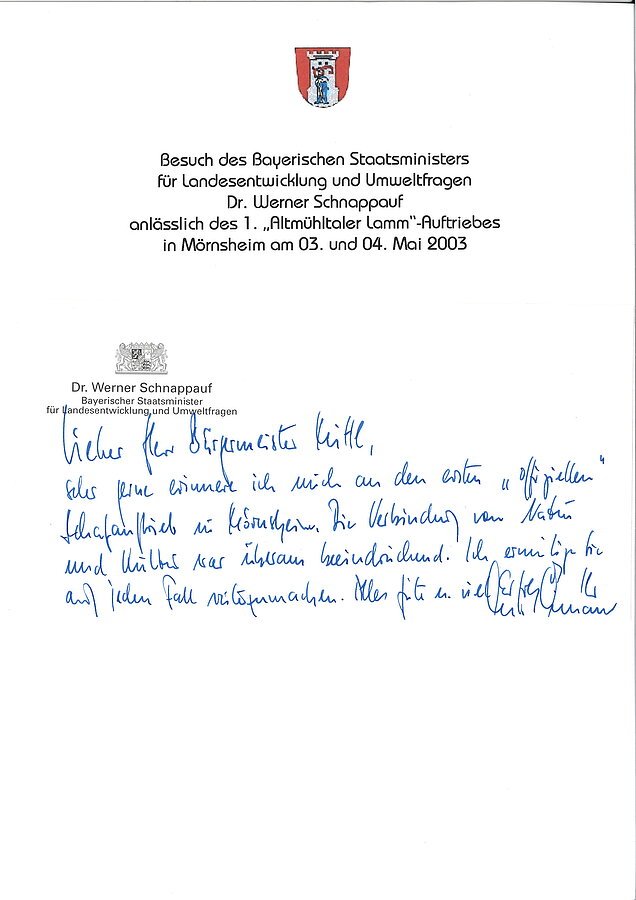 Besuch des Bayerischen Staatsministers
für Landesentwicklung und Umweltfragen
Dr. Werner Schnappauf
anlässlich des 1. „Altmühltaler Lamm“-Auftriebes
in Mörnsheim am 03. und 04. Mai 2003
Dr. Werner Schnappauf
Bayerischer Staatsminister
für Landesentwicklung und Umweltfragen
Lieber Herr Bürgermeister
sehr gerne erinnere ich mich an den ersten „offiziellen“
Schafauftrieb in Mörnsheim. Die Verbindung von Natur
und Kultur war überaus beeindruckend. Ich ermutige Sie
auf jeden Fall weiterzumachen. Alles Gute u. viel Erfolg Ihr